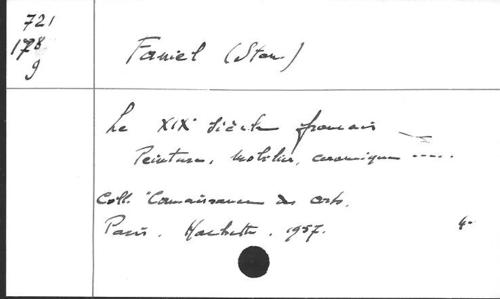 721
178
9
Faniel (Stan)
Le XIXe siècle français
Peinture, mobilier, ceramique .....
Coll. "Connaissance des arts.
Paris. Hachette. 1957. 4-